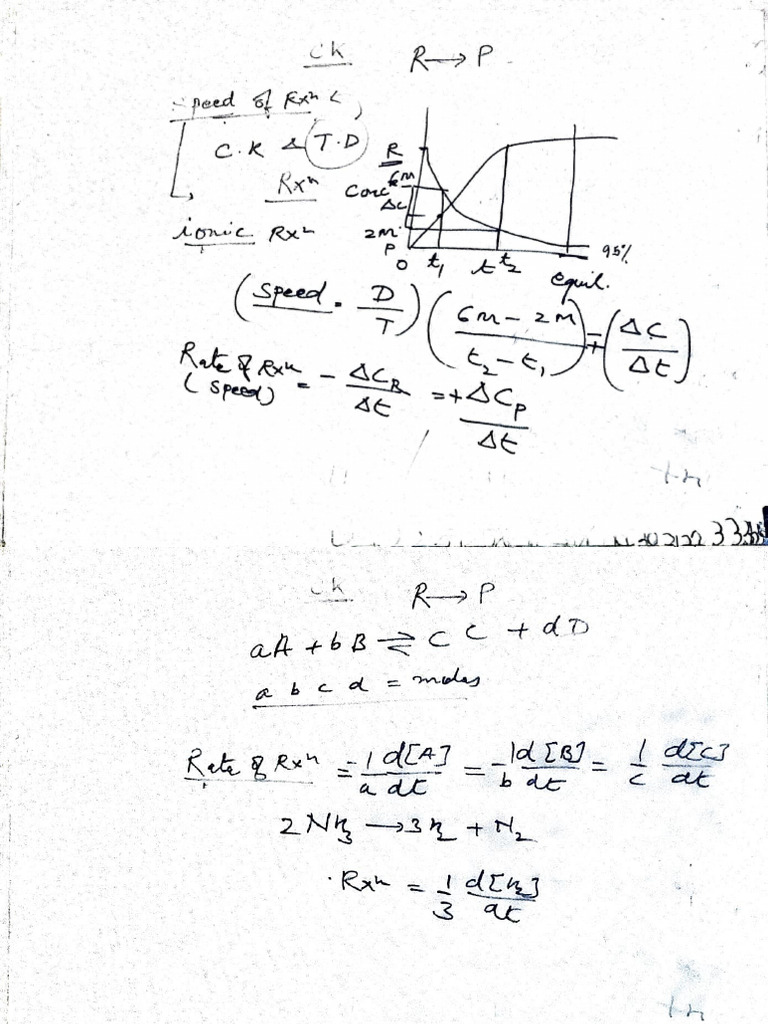 CK R → P
Speed of Rxn <
C.K & T.D
Rxn
ionic Rxn
R
6m
Conc
ΔC
2m
P
0 t₁ t t₂ equil. 95%
(Speed = D/T) (6m - 2m / t₂ - t₁) = (ΔC/Δt)
Rate of Rxn = - ΔC_R/Δt = + ΔC_P/Δt
(Speed)
CK R → P
aA + bB ⇌ cC + dD
a b c d = moles
Rate of Rxn = -1/a d[A]/dt = -1/b d[B]/dt = 1/c d[C]/dt
2NH₃ → 3H₂ + N₂
Rxn = 1/3 d[H₂]/dt